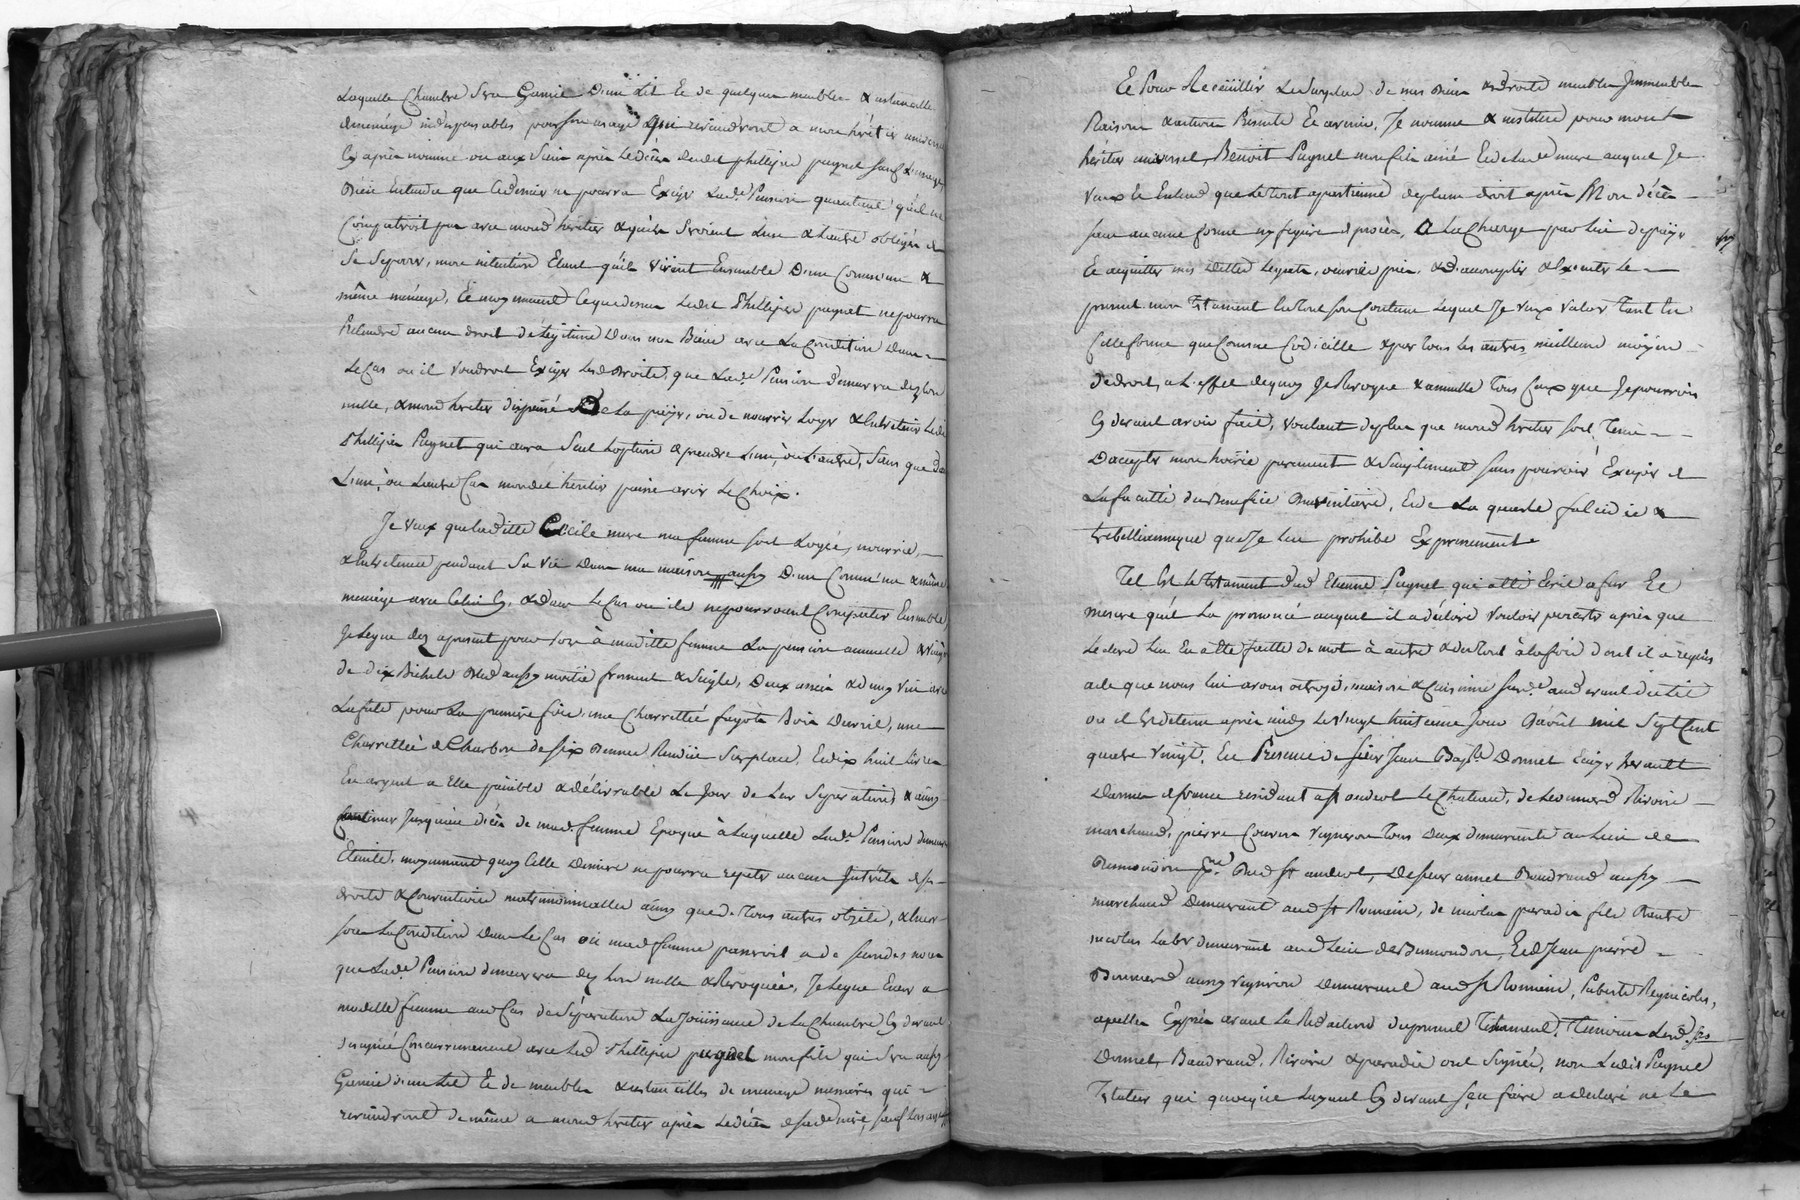 Laquelle Chambre Sera Garnie D'un Lit Et de quelques meubles & ustancille
demenage indispensables pour son usage Qui reviendront a mon héritier universel
Cy après nommé ou aux Siens après Le décès dudit phillippe paynet sauf
Bien Entendu que Ce dernier ne pourra Exiger Lade. Pension quautant qu'il ne
Compatiroit pas avec mond. heritier & quils Seroient L'un & L'autre obligés de
Se Separer, mon intention Etant qu'ils vivent Ensemble D'une Commune &
même menage, Et moyennant Ce que dessus Ledit Phillippe paynet ne pourra
Pretendre aucun droit de Légitime Dans mes Biens avec La Condition Dans
Le Cas ou il voudroit Exiger Lesd. Droits, que Lade. Pension Demeurera dez lors
nulle, & mond heritier dispensé De La payer, ou de nourrir Loger & Entretenir Ledit
Phillippe Paynet qui aura Seul Loption de prendre L'un, ou L'autre, Sans que dans
L'un, ou L'autre Cas mondit héritier puisse avoir Le Choix.
Je veux que laditte Cecile mere ma femme soit Logée, nourrie,
& Entretenue pendant Sa vie Dans ma maison aussy D'une Commune & même
menage avec Celui Cy, & Dans Le Cas ou ils ne pourroient Compatir Ensemble
Je Legue dez apresent pour lors à maditte femme La pension annuelle & viagere
de dix Bichets Bled aussy moitié froment & Seigle, Deux anées de vin avec
La futte pour La premiere fois, une Charrettée fagots Bois Davril, une
Charrettée de Charbon de Six Bennes Rendüe Sur place, Et dix huit Livres
En argent a Elle païable & délivrable Le Jour de Leur Separation & ainsy
Continuer Jusquau décès de mad. femme Epoque à Laquelle Lade. Pension demeurera
Eteinte, moyennant quoy Cette Derniere ne pourra repeter aucuns Intérêts de ses
droits & Conventions matrimonialles ainsy que de Tous autres objets,
sous La Condition Dans Le Cas où mad femme passeroit a de secondes noces
que Lade. Pension demeurera dez lors nulle & Revoquée, Je Legue Encor a
maditte femme aud Cas de Séparation La Joüissance de La Chambre Cy devant
Concurremment avec led Phillippe paynet mon fils qui Sera aussy
Garnie d'un Lit Et de meubles & ustancilles de menage necessaires qui
reviendront de même a mond heritier après Le décès de sade mère, sauf Les
Et Pour Recüeillir Le Surplus de mes Biens & droits meubles Immeubles
Raisons & actions Presents Et avenir, Je nomme & institue pour mon
héritier universel Benoit Paynet mon fils ainé Et de Lade mere auquel Je
veux Et Entend que Le Tout apartienne de plein droit après Mon décès
sans aucune forme ny figure de procès, A La Charge par lui de payer
Et acquitter mes Dettes Legats, oeuvres pies & D'accomplir & Executer Le
present mon Testament En Tout son Contenu Lequel Je veux valoir Tant En
Cette forme que Comme Codicille & par tous les autres meilleurs moyens
de droit, a L'effet de quoy Je Revoque & annulle Tous Ceux que Je pourrois
Cy devant avoir fait, voulant de plus que mond heritier soit Tenu
D'accepter mon hoirie purement & Simplement sans pouvoir Exciper de
La faculté du Benefice D'inventaire, Et de La quarte falcidie &
trebellianique que Je lui prohibe Expressement
Tel Est Le Testament dud Etienne Paynet qui a été Ecrit a fur Et
mesure quil L'a prononcé auquel il a déclaré vouloir persister après que
Lecture Lui En a été faitte de mot à autre & du tout à la fois dont il a requis
acte que nous lui avons octroyé, maison & Cuisine Sur.d. aud avant dit lit
ou il Est detenu après midy Le vingt huitieme Jour D'août mil Sept Cent
quatre vingt, En Presence de Sieur Jean Baptte Donnet Ecuyer herault
Darmes de france residant a st andeol Le Chateau, de Leonnard Rivoire
marchand, pierre Couvon vigneron Tous Deux demeurants au Lieu de
Bud st andeol, De sieur annet Baudrand aussy
marchand Demeurant aud st Romain, de nicolas paradis fils D'autre
nicolas Labr demeurant aud Lieu de Et de Jean pierre
Bonnard aussy vigneron Demeurant aud St Romain, Puberts Regnicoles,
apellés Exprès avant La Redaction du present Testament Temoins Lesd. srs
Donnet, Baudrand, Rivoire & paradis ont Signés, non Ledit Paynet
Testateur qui quoique Layant Cy devant Sçu faire a déclaré ne Le